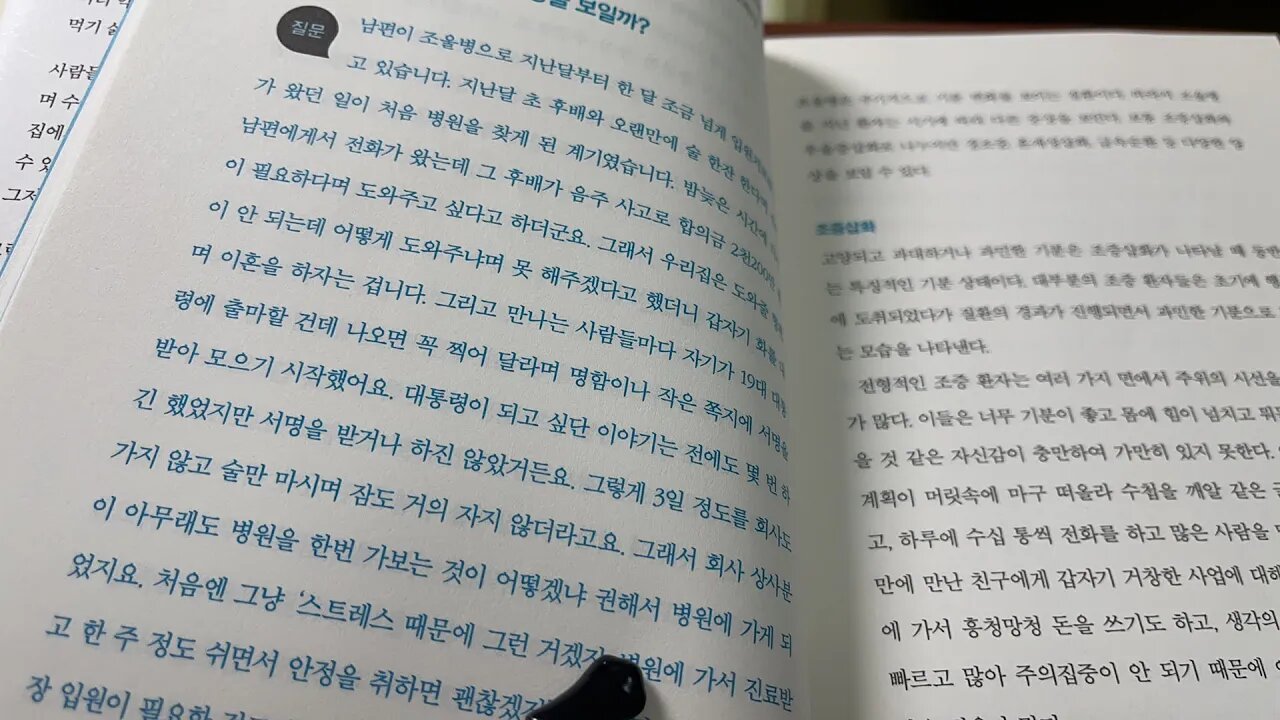 먹기
사람들
며 수
집에
수 있
그저
보일까?
질문
남편이 조울병으로 지난달부터 한 달 조금 넘게
고 있습니다. 지난달 초 후배와 오랜만에 술 한잔 한다며
가 왔던 일이 처음 병원을 찾게 된 계기였습니다. 밤늦은 시간에
남편에게서 전화가 왔는데 그 후배가 음주 사고로 합의금 2천200만
이 필요하다며 도와주고 싶다고 하더군요. 그래서 우리집은 도와줄
이 안 되는데 어떻게 도와주냐며 못 해주겠다고 했더니 갑자기 화를
며 이혼을 하자는 겁니다. 그리고 만나는 사람들마다 자기가 19대 대통
령에 출마할 건데 나오면 꼭 찍어 달라며 명함이나 작은 쪽지에 서명을
받아 모으기 시작했어요. 대통령이 되고 싶단 이야기는 전에도 몇 번 하
긴 했었지만 서명을 받거나 하진 않았거든요. 그렇게 3일 정도를 회사도
가지 않고 술만 마시며 잠도 거의 자지 않더라고요. 그래서 회사 상사분
이 아무래도 병원을 한번 가보는 것이 어떻겠냐 권해서 병원에 가게 되
었지요. 처음엔 그냥 '스트레스 때문에 그런 거겠지 병원에 가서 진료받
고 한 주 정도 쉬면서 안정을 취하면 괜찮겠
장 입원이 필요한
상을 보일 수 있다.
조증삽화
고양되고 과대하거나 과민한 기분은 조증삽화가 나타날 때 동반
는 특징적인 기분 상태이다. 대부분의 조증 환자들은 초기에 행
에 도취되었다가 질환의 경과가 진행되면서 과민한 기분으로
는 모습을 나타낸다.
전형적인 조증 환자는 여러 가지 면에서 주위의 시선을
가 많다. 이들은 너무 기분이 좋고 몸에 힘이 넘치고 뭐
을 것 같은 자신감이 충만하여 가만히 있지 못한다.
계획이 머릿속에 마구 떠올라 수첩을 깨알 같은
고, 하루에 수십 통씩 전화를 하고 많은 사람을
만에 만난 친구에게 갑자기 거창한 사업에 대해
에 가서 흥청망청 돈을 쓰기도 하고, 생각의
빠르고 많아 주의집중이 안 되기 때문에